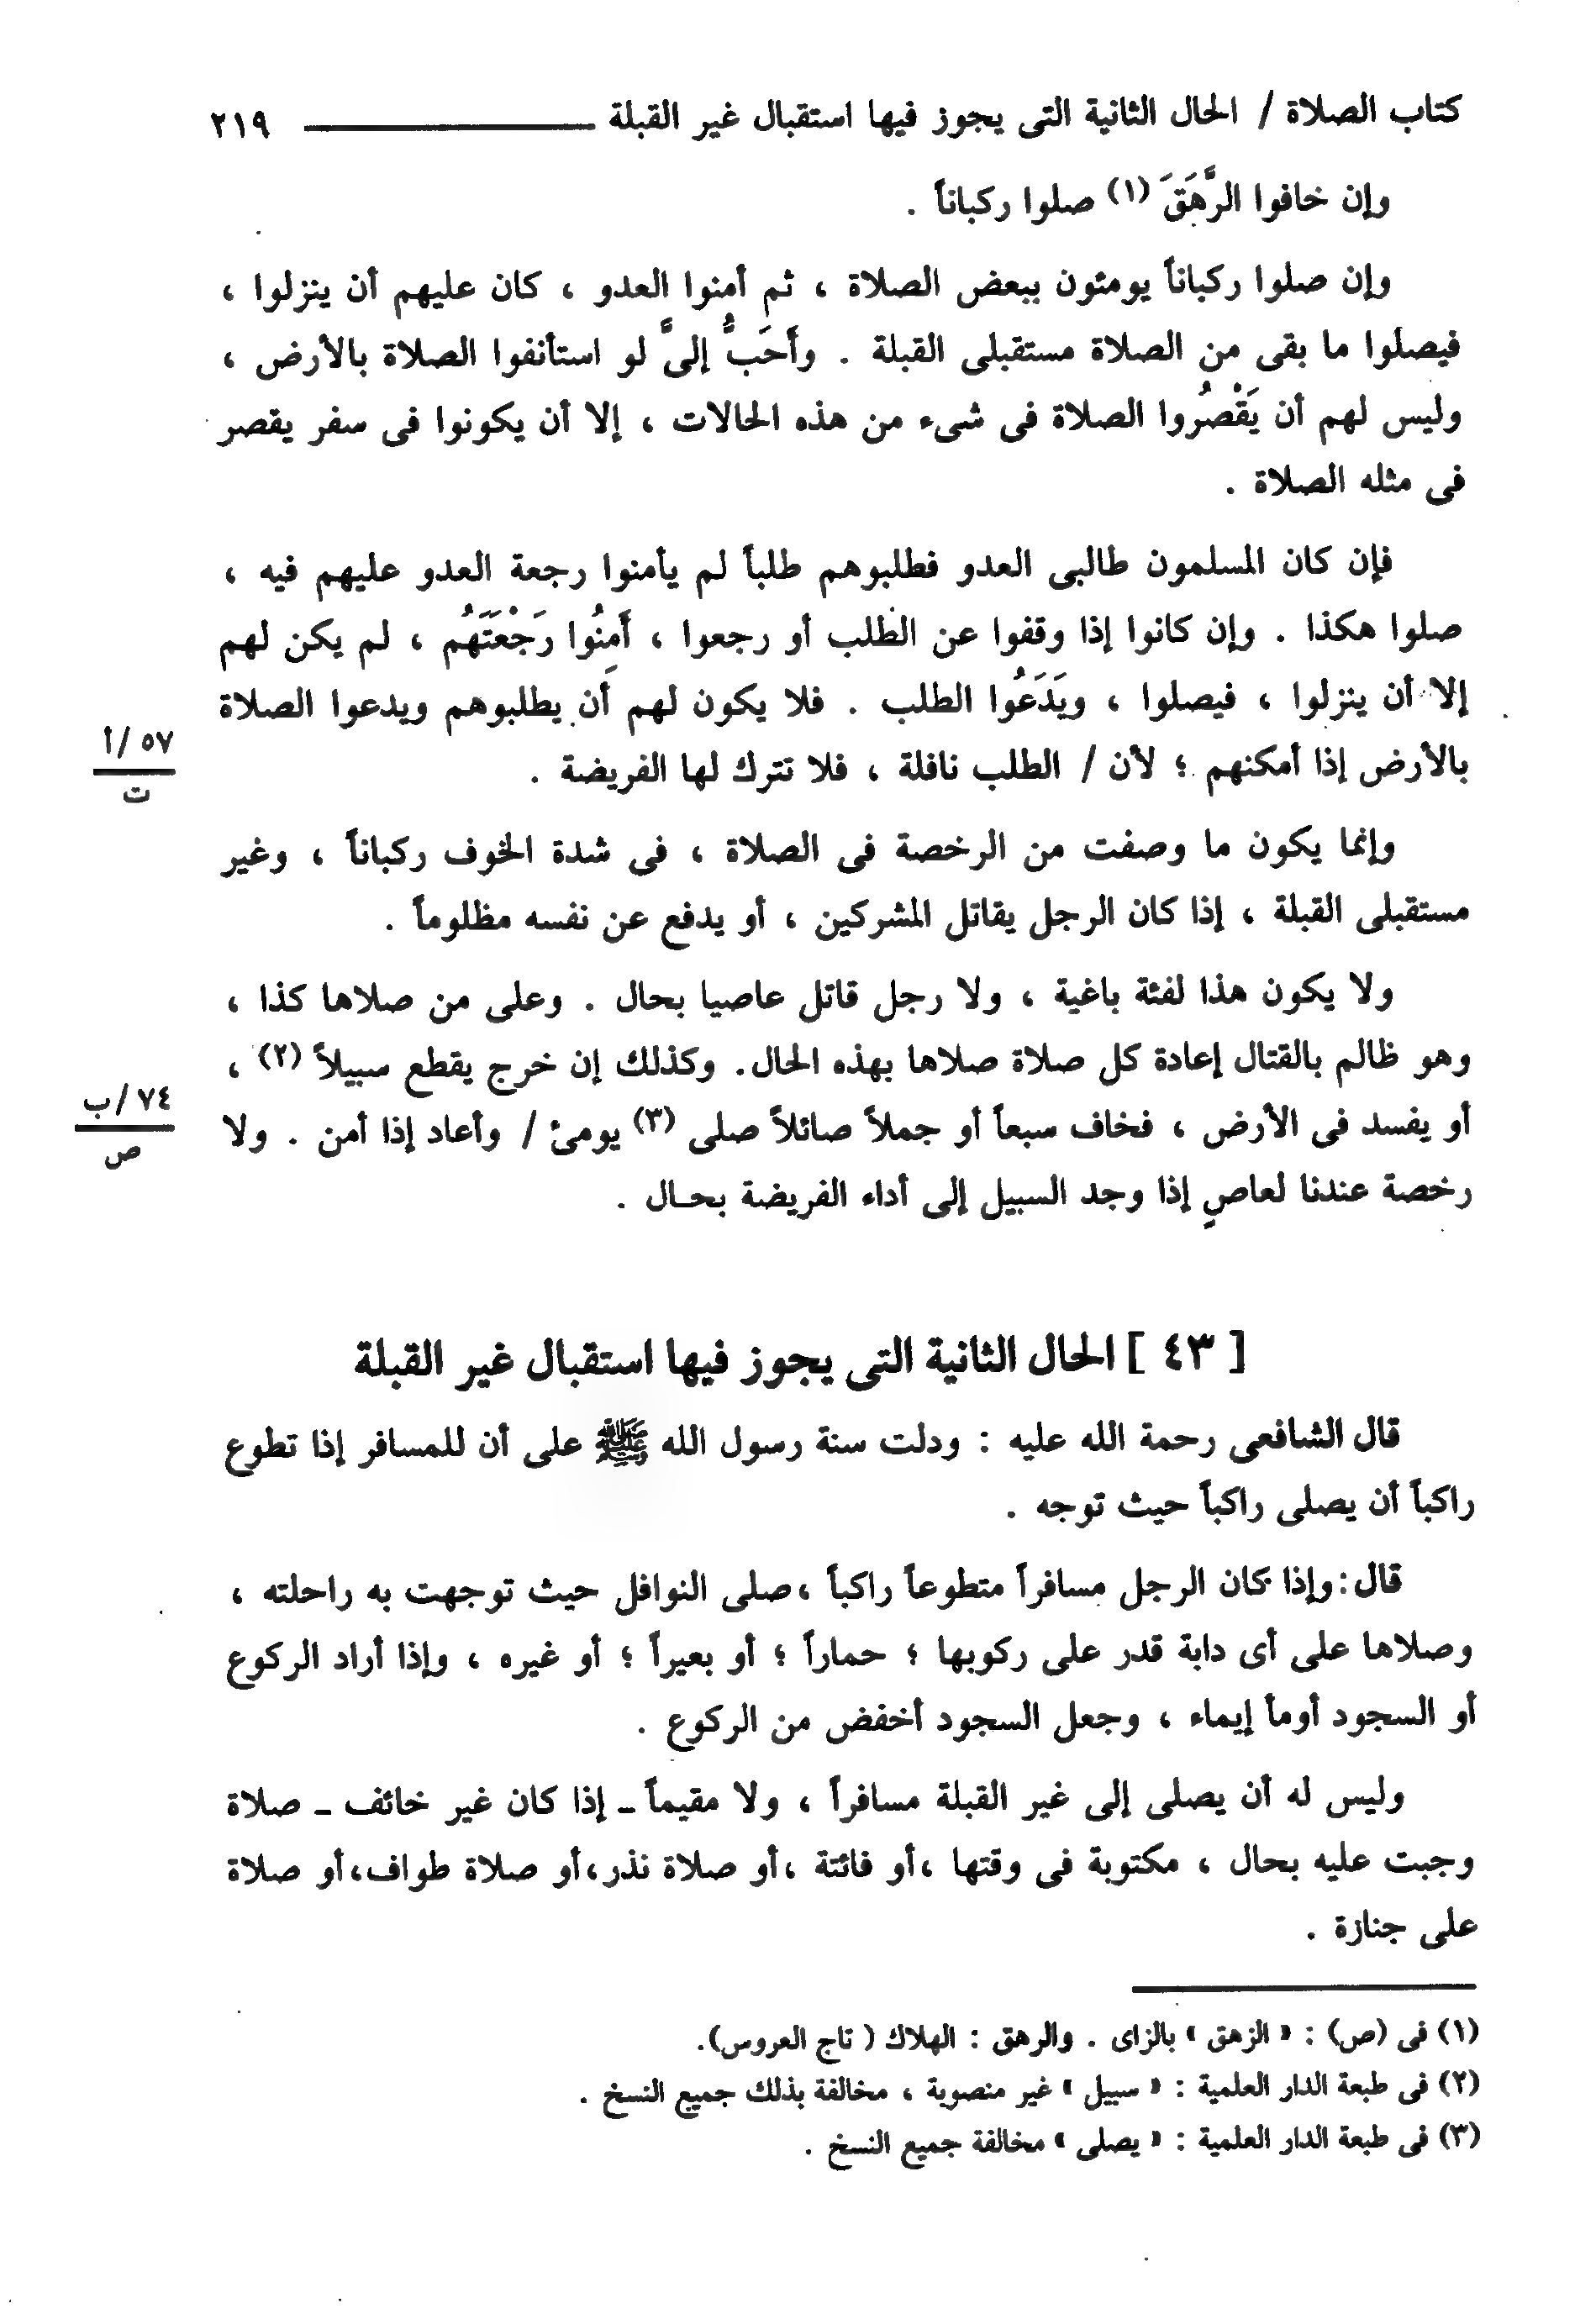 كتاب الصلاة / الحال الثانية التى يجوز فيها استقبال غير القبلة ٢١٩
وإن خافوا الرَّهَقَ (١) صلوا ركباناً .
وإن صلوا ركباناً يومئون ببعض الصلاة ، ثم أمنوا العدو ، كان عليهم أن ينزلوا ،
فيصلوا ما بقى من الصلاة مستقبلى القبلة . وأَحَبُّ إلىَّ لو استأنفوا الصلاة بالأرض ،
وليس لهم أن يَقْصُروا الصلاة فى شىء من هذه الحالات ، إلا أن يكونوا فى سفر يقصر
فى مثله الصلاة .
فإن كان المسلمون طالبى العدو فطلبوهم طلباً لم يأمنوا رجعة العدو عليهم فيه ،
صلوا هكذا . وإن كانوا إذا وقفوا عن الطلب أو رجعوا ، أَمِنُوا رَجْعَتَهُم ، لم يكن لهم
إلا أن ينزلوا ، فيصلوا ، ويَدَعُوا الطلب . فلا يكون لهم أن يطلبوهم ويدعوا الصلاة
بالأرض إذا أمكنهم ؛ لأن / الطلب نافلة ، فلا تترك لها الفريضة .
٥٧ /أ
ت
وإنما يكون ما وصفت من الرخصة فى الصلاة ، فى شدة الخوف ركباناً ، وغير
مستقبلى القبلة ، إذا كان الرجل يقاتل المشركين ، أو يدفع عن نفسه مظلوماً .
ولا يكون هذا لفئة باغية ، ولا رجل قاتل عاصيا بحال . وعلى من صلاها كذا ،
وهو ظالم بالقتال إعادة كل صلاة صلاها بهذه الحال. وكذلك إن خرج يقطع سبيلاً (٢) ،
أو يفسد فى الأرض ، فخاف سبعاً أو جملاً صائلاً صلى (٣) يومئ / وأعاد إذا أمن . ولا
٧٤ /ب
ص
رخصة عندنا لعاصٍ إذا وجد السبيل إلى أداء الفريضة بحـال .
[ ٤٣ ] الحال الثانية التى يجوز فيها استقبال غير القبلة
قال الشافعى رحمة الله عليه : ودلت سنة رسول الله ﷺ على أن للمسافر إذا تطوع
راكباً أن يصلى راكباً حيث توجه .
قال :وإذا كان الرجل مسافراً متطوعاً راكباً ،صلى النوافل حيث توجهت به راحلته ،
وصلاها على أى دابة قدر على ركوبها ؛ حماراً ؛ أو بعيراً ؛ أو غيره ، وإذا أراد الركوع
أو السجود أومأ إيماء ، وجعل السجود أخفض من الركوع .
وليس له أن يصلى إلى غير القبلة مسافراً ، ولا مقيماً ـ إذا كان غير خائف ـ صلاة
وجبت عليه بحال ، مكتوبة فى وقتها ،أو فائتة ،أو صلاة نذر،أو صلاة طواف،أو صلاة
على جنازة .
(١) فى (ص) : « الزهق » بالزاى . والرهق : الهلاك ( تاج العروس).
(٢) فى طبعة الدار العلمية : « سبيل » غير منصوبة ، مخالفة بذلك جميع النسخ .
(٣) فى طبعة الدار العلمية : « يصلى » مخالفة جميع النسخ .